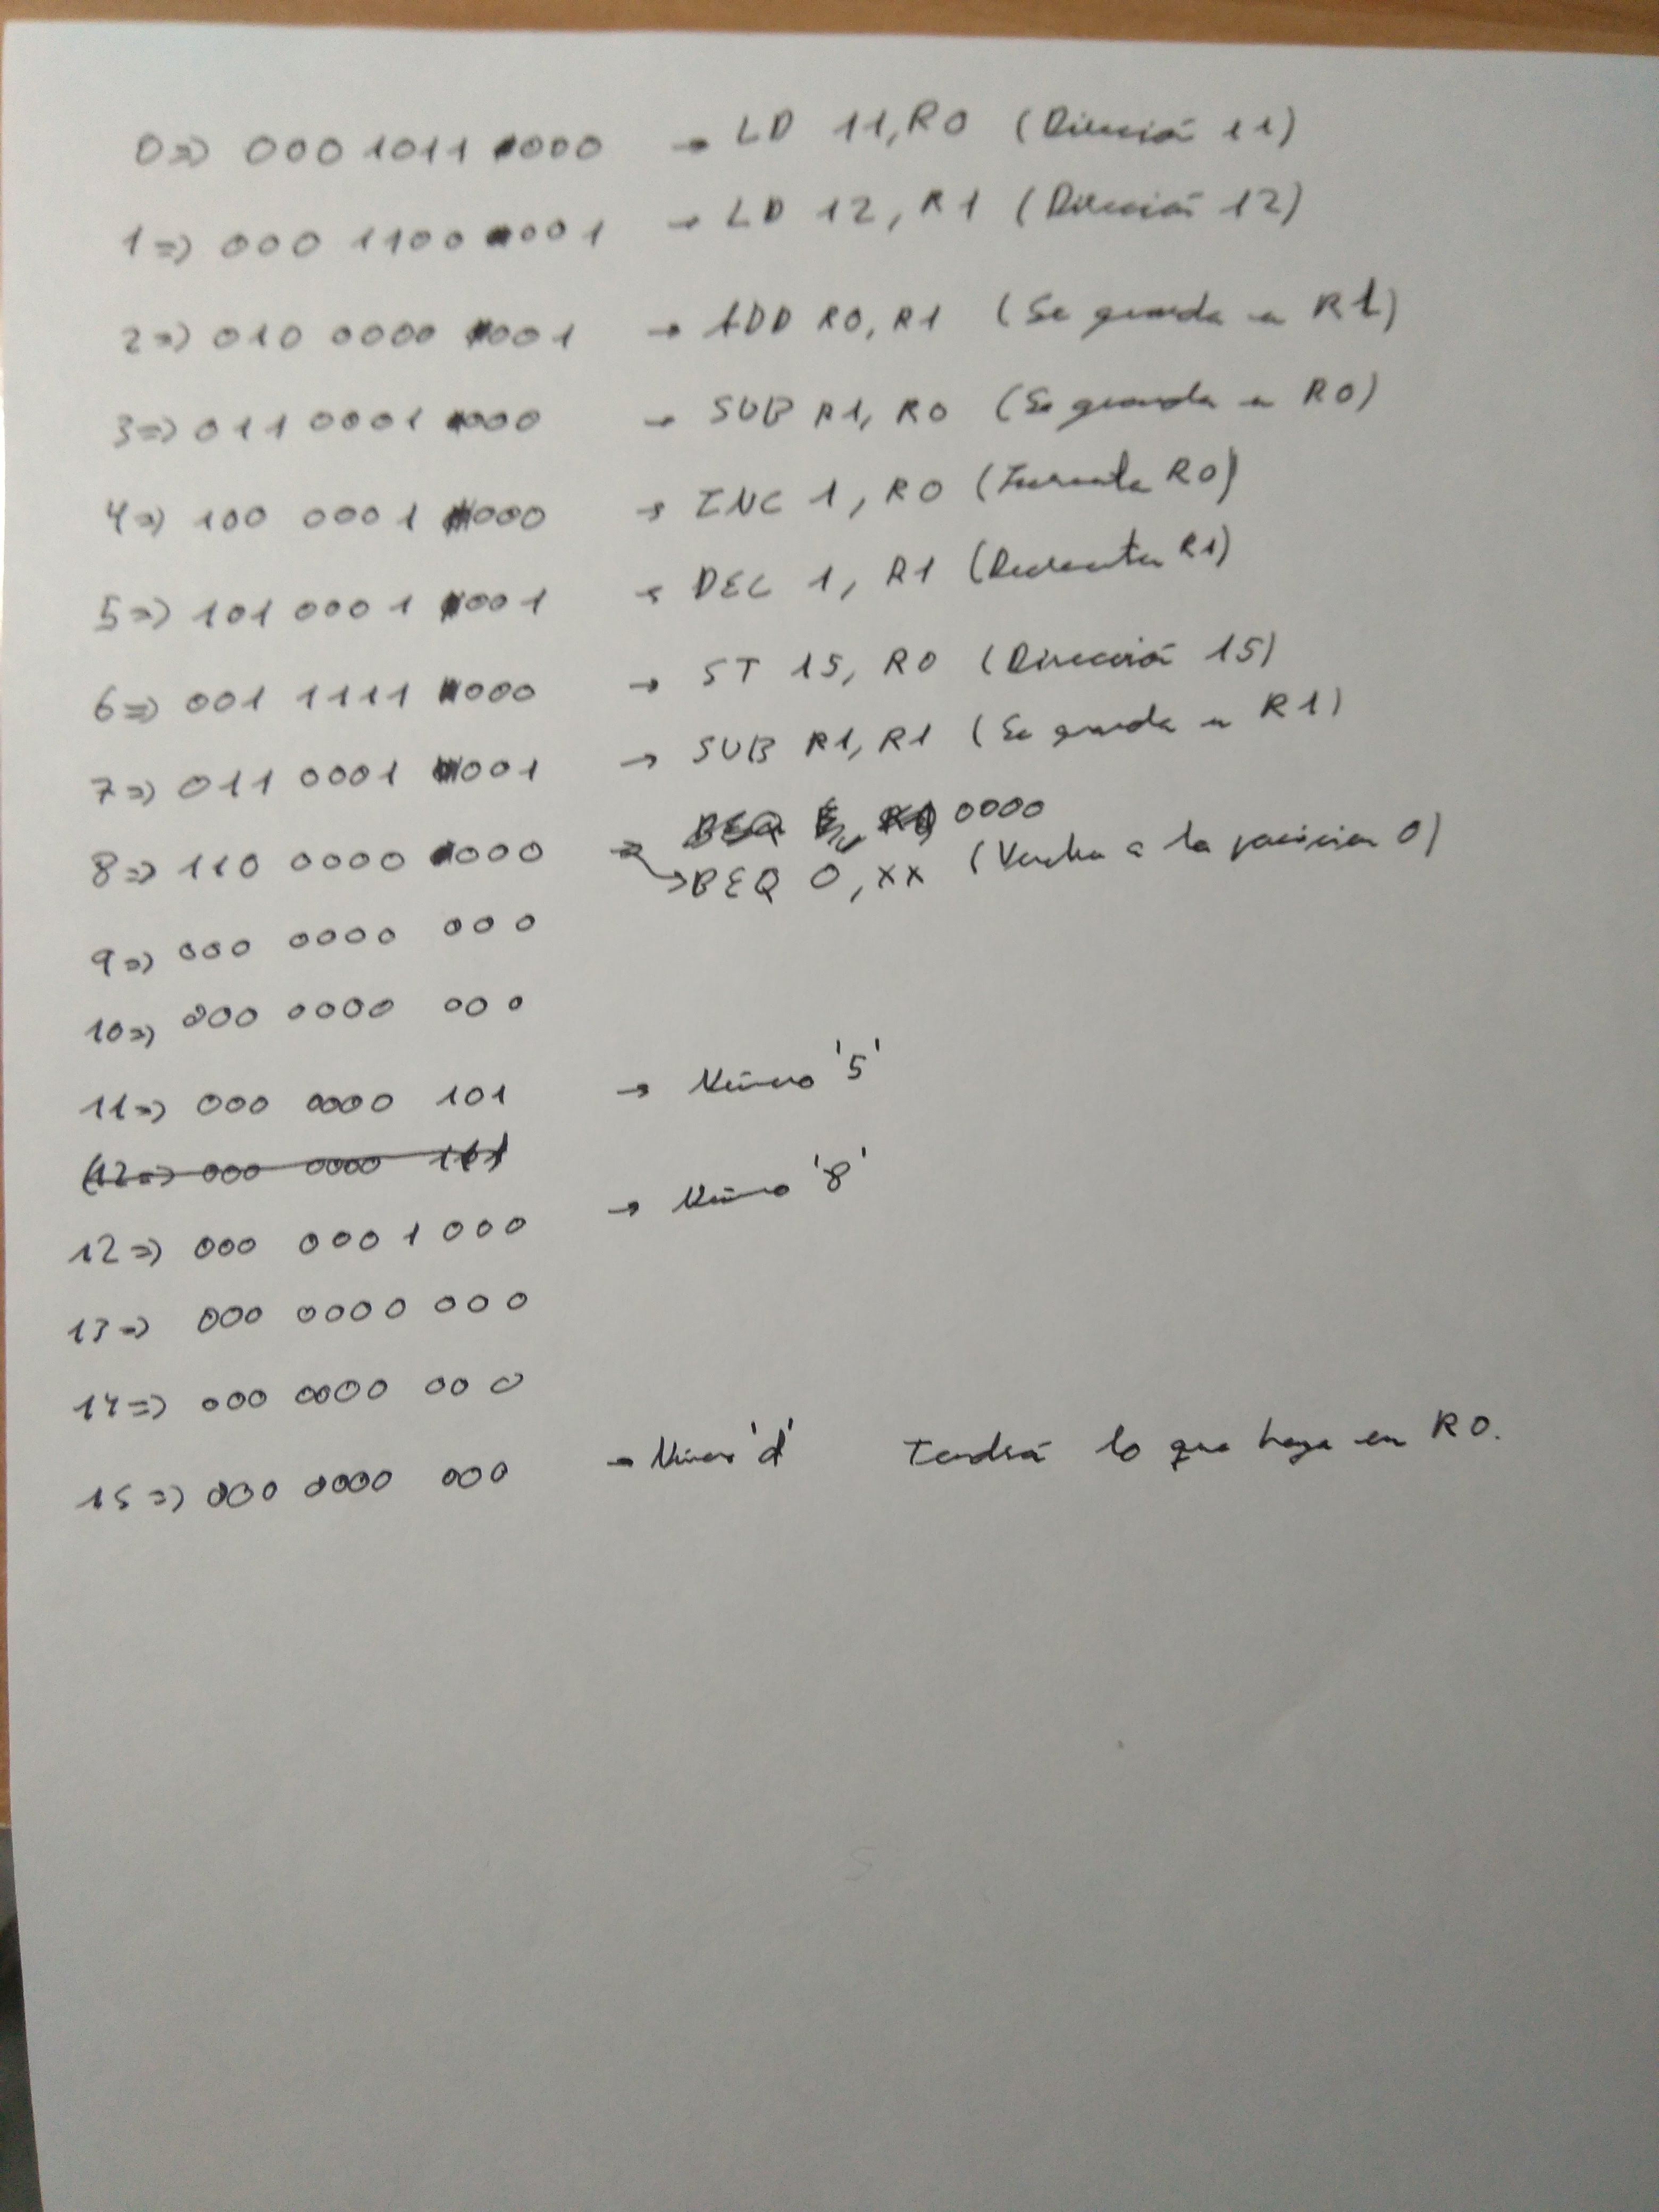 0=> 000 1011 000 → LD 11, R0 (Dirección 11)
1=> 000 1100 001 → LD 12, R1 (Dirección 12)
2=> 010 0000 001 → ADD R0, R1 (Se guarda en R1)
3=> 011 0001 000 → SUB R1, R0 (Se guarda en R0)
4=> 100 0001 000 → INC 1, R0 (Incrementa R0)
5=> 101 0001 001 → DEC 1, R1 (Decrementa R1)
6=> 001 1111 000 → ST 15, R0 (Dirección 15)
7=> 011 0001 001 → SUB R1, R1 (Se guarda en R1)
0000
8=> 110 0000 000 → BEQ 0, XX (Vuelve a la posicion 0)
9=> 000 0000 000
10=> 000 0000 000
11=> 000 0000 101 → Número '5'
12=> 000 0000 101
12=> 000 0001 000 → Número '8'
13=> 000 0000 000
14=> 000 0000 000
15=> 000 0000 000 → Número 'd' Tendrá lo que haya en R0.